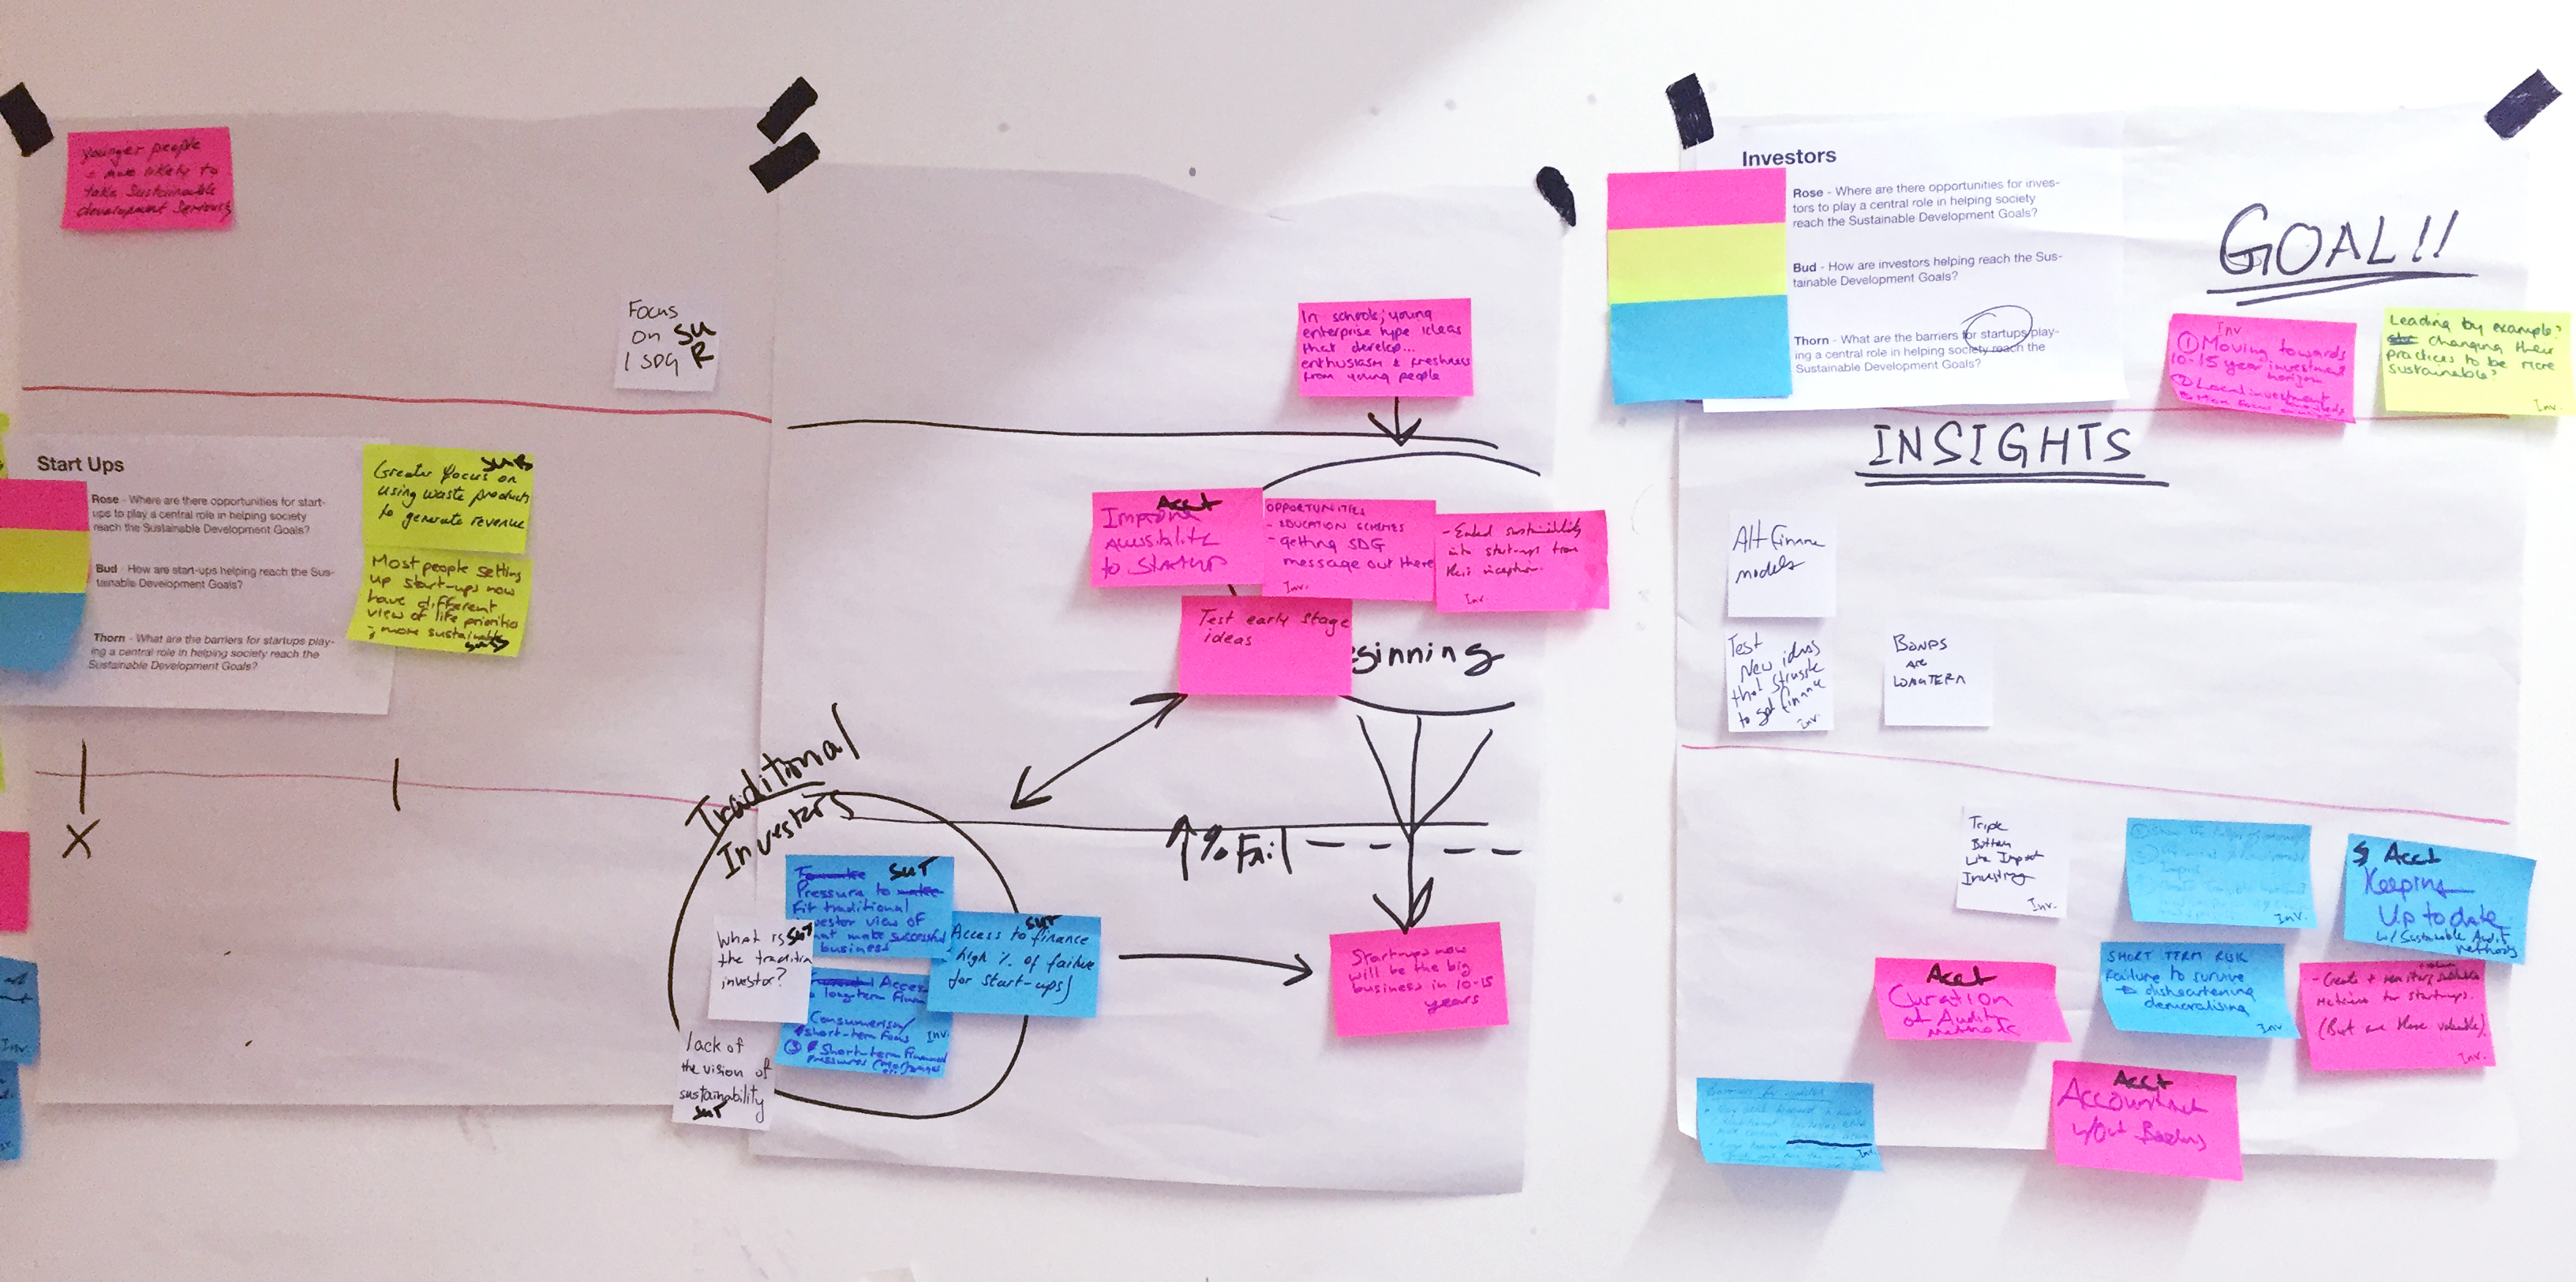 younger people
likely to
take Sustainable
development seriously
Focus
on SU
1 SDG R
Start Ups
Rose - Where are there opportunities for start-
ups to play a central role in helping society
reach the Sustainable Development Goals?
Bud - How are start-ups helping reach the Sus-
tainable Development Goals?
Thorn - What are the barriers for startups play-
ing a central role in helping society reach the
Sustainable Development Goals?
Greater focus on
using waste products
to generate revenue
Most people setting
up start-ups now
have different
view of life priorities
; more sustainable
X
In schools; young
enterprise type ideas
that develop...
enthusiasm & freshness
from young people
Acct
Improve
Accessibility
to Startup
OPPORTUNITIES
- EDUCATION SCHEMES
- getting SDG
message out there
Inv.
- Embed sustainability
into start-ups from
their inception.
Inv.
Test early stage
ideas
ginning
Traditional
Investors
SUT
Pressure to
fit traditional
investor view of
what make successful
business
What is SUT
the tradition
investor?
SUT
Access to finance
high % of failure
for start-ups)
Access
to long-term finan
Consumerism/
short-term focus
Inv.
Short-term financial
pressures
lack of
the vision of
sustainability
SUT
↑ % Fail
Start-ups now
will be the big
business in 10-15
years
Investors
Rose - Where are there opportunities for inves-
tors to play a central role in helping society
reach the Sustainable Development Goals?
Bud - How are investors helping reach the Sus-
tainable Development Goals?
Thorn - What are the barriers for startups play-
ing a central role in helping society reach the
Sustainable Development Goals?
GOAL!!
Inv
① Moving towards
10-15 year investment
horizon
Local investment
Leading by example?
changing their
practices to be more
sustainable?
Inv.
INSIGHTS
Alt finance
models
Test
New ideas
that struggle
to get finance
Inv.
BONDS
ARE
LONGTERM
Triple
Bottom
Line Impact
Investing
Inv.
Inv.
Acct
Keeping
Up to date
w/ Sustainable Audit
methods
Acct
Curation
of Audit
methods
SHORT TERM RISK
failure to survive
disheartening
demoralising
Inv
- Create + monitor
Metrics for startups.
(But are these valuable)
Inv.
Inv.
Acct
Accountant
w/out Borders